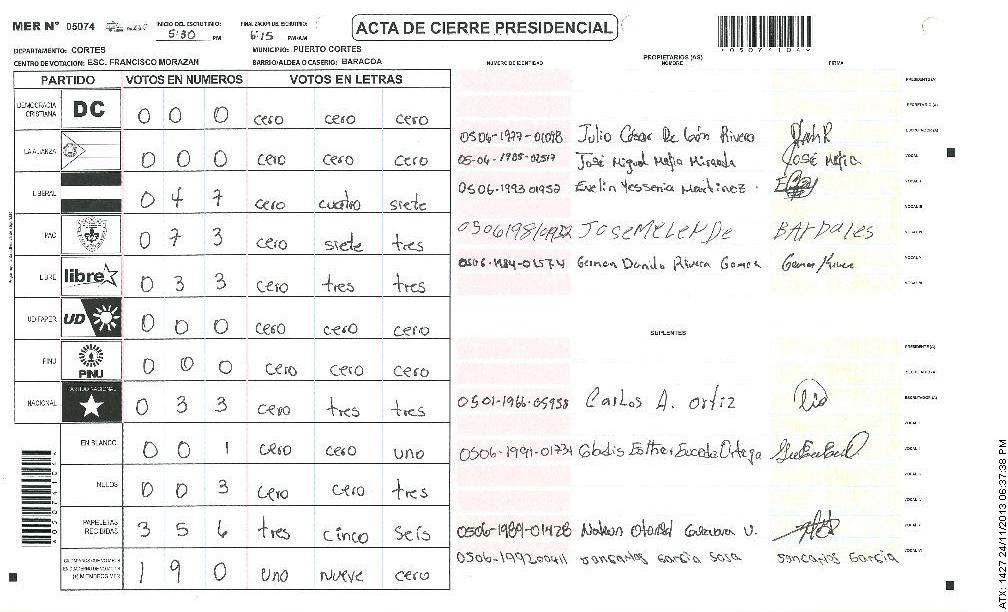 MER Nº 05074
INICIO DEL ESCRUTINIO: 5:30 PM
FINALIZACION DEL ESCRUTINIO: 6:15 PM-AM
ACTA DE CIERRE PRESIDENCIAL
DEPARTAMENTO: CORTES
MUNICIPIO: PUERTO CORTES
CENTRO DE VOTACION: ESC. FRANCISCO MORAZAN
BARRIO/ALDEA O CASERIO: BARACOA
PARTIDO VOTOS EN NUMEROS VOTOS EN LETRAS
DEMOCRACIA CRISTIANA DC 0 0 0 cero cero cero
LA ALIANZA 0 0 0 cero cero cero
LIBERAL 0 4 7 cero cuatro siete
PAC 0 7 3 cero siete tres
LIBRE libre 0 3 3 cero tres tres
UD FAPER UD 0 0 0 cero cero cero
PINU PINU 0 0 0 cero cero cero
NACIONAL PARTIDO NACIONAL 0 3 3 cero tres tres
EN BLANCO 0 0 1 cero cero uno
NULOS 0 0 3 cero cero tres
PAPELETAS RECIBIDAS 3 5 6 tres cinco seis
1 9 0 uno nueve cero
NUMERO DE IDENTIDAD
PROPIETARIOS (AS)
NOMBRE
FIRMA
PRESIDENTE (A)
SECRETARIO (A)
ESCRUTADOR (A)
Julio César De León Rivera
VOCAL I
José Miguel Mejia Miranda José Mejia
VOCAL II
0506-1993 01952 Evelin Yessenia Martinez
VOCAL III
VOCAL IV
JOSE MELENDE BARDALES
VOCAL V
0506-1984-01574 German Danilo Rivera Gomez
VOCAL VI
SUPLENTES
PRESIDENTE (A)
SECRETARIO (A)
ESCRUTADOR (A)
0501-1966-05958 Carlos A. Ortiz
VOCAL I
VOCAL II
0506-1991-01734 Gladis Esther Euceda Ortega
VOCAL III
VOCAL IV
VOCAL V
0506-1989-01428
VOCAL VI
0506-199200411 Joncarlos Garcia Sosa Joncarlos Garcia
ATX: 1427 24/11/2013 06:37:38 PM